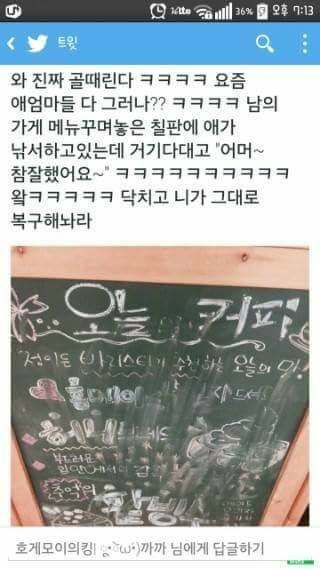 36% 오후 7:13
트윗
와 진짜 골때린다 ㅋㅋㅋㅋ 요즘
애엄마들 다 그러나?? ㅋㅋㅋㅋ 남의
가게 메뉴꾸며놓은 칠판에 애가
낚서하고있는데 거기다대고 "어머~
참잘했어요~" ㅋㅋㅋㅋㅋㅋㅋㅋㅋㅋ
왘ㅋㅋㅋㅋㅋ 닥치고 니가 그대로
복구해놔라
오늘의 커피
추천하는 오늘의
추억의
호게모이의킹| 까까 님에게 답글하기